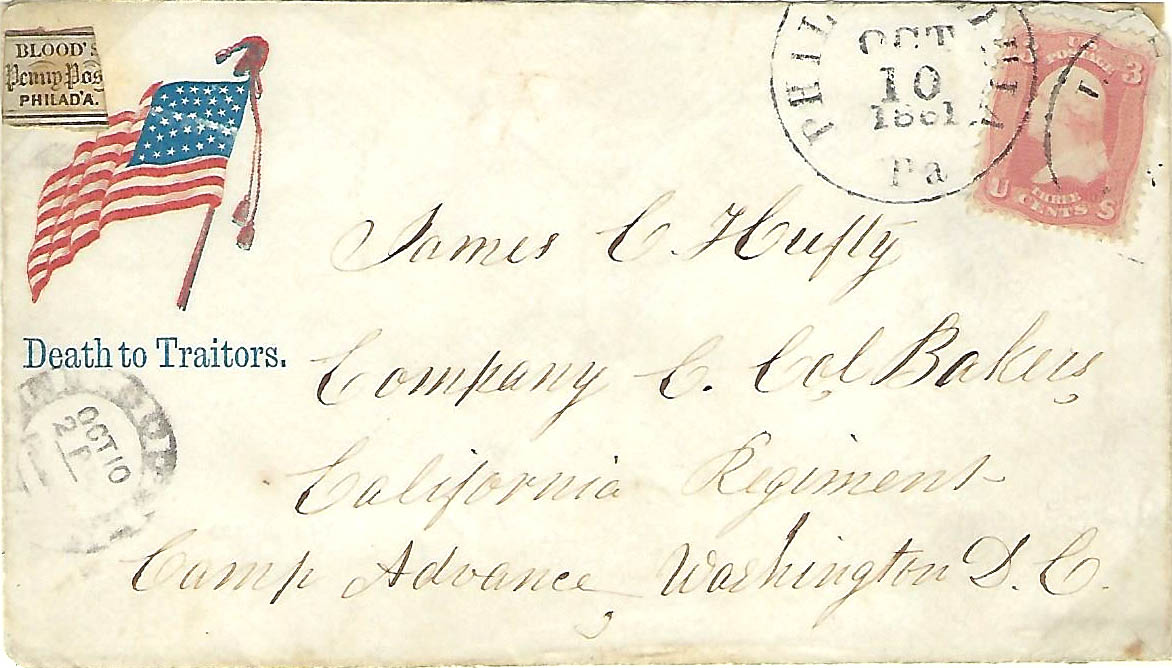 BLOOD'S
Penny Pos
PHILAD'A.
OCT
10
1861
Pa
U.S.
POSTAGE
3
U S
THREE
CENTS
James C. Hufty
Death to Traitors.
Company C. Col Bakers,
OCT 10
California Regiment
Camp Advance, Washington D. C.